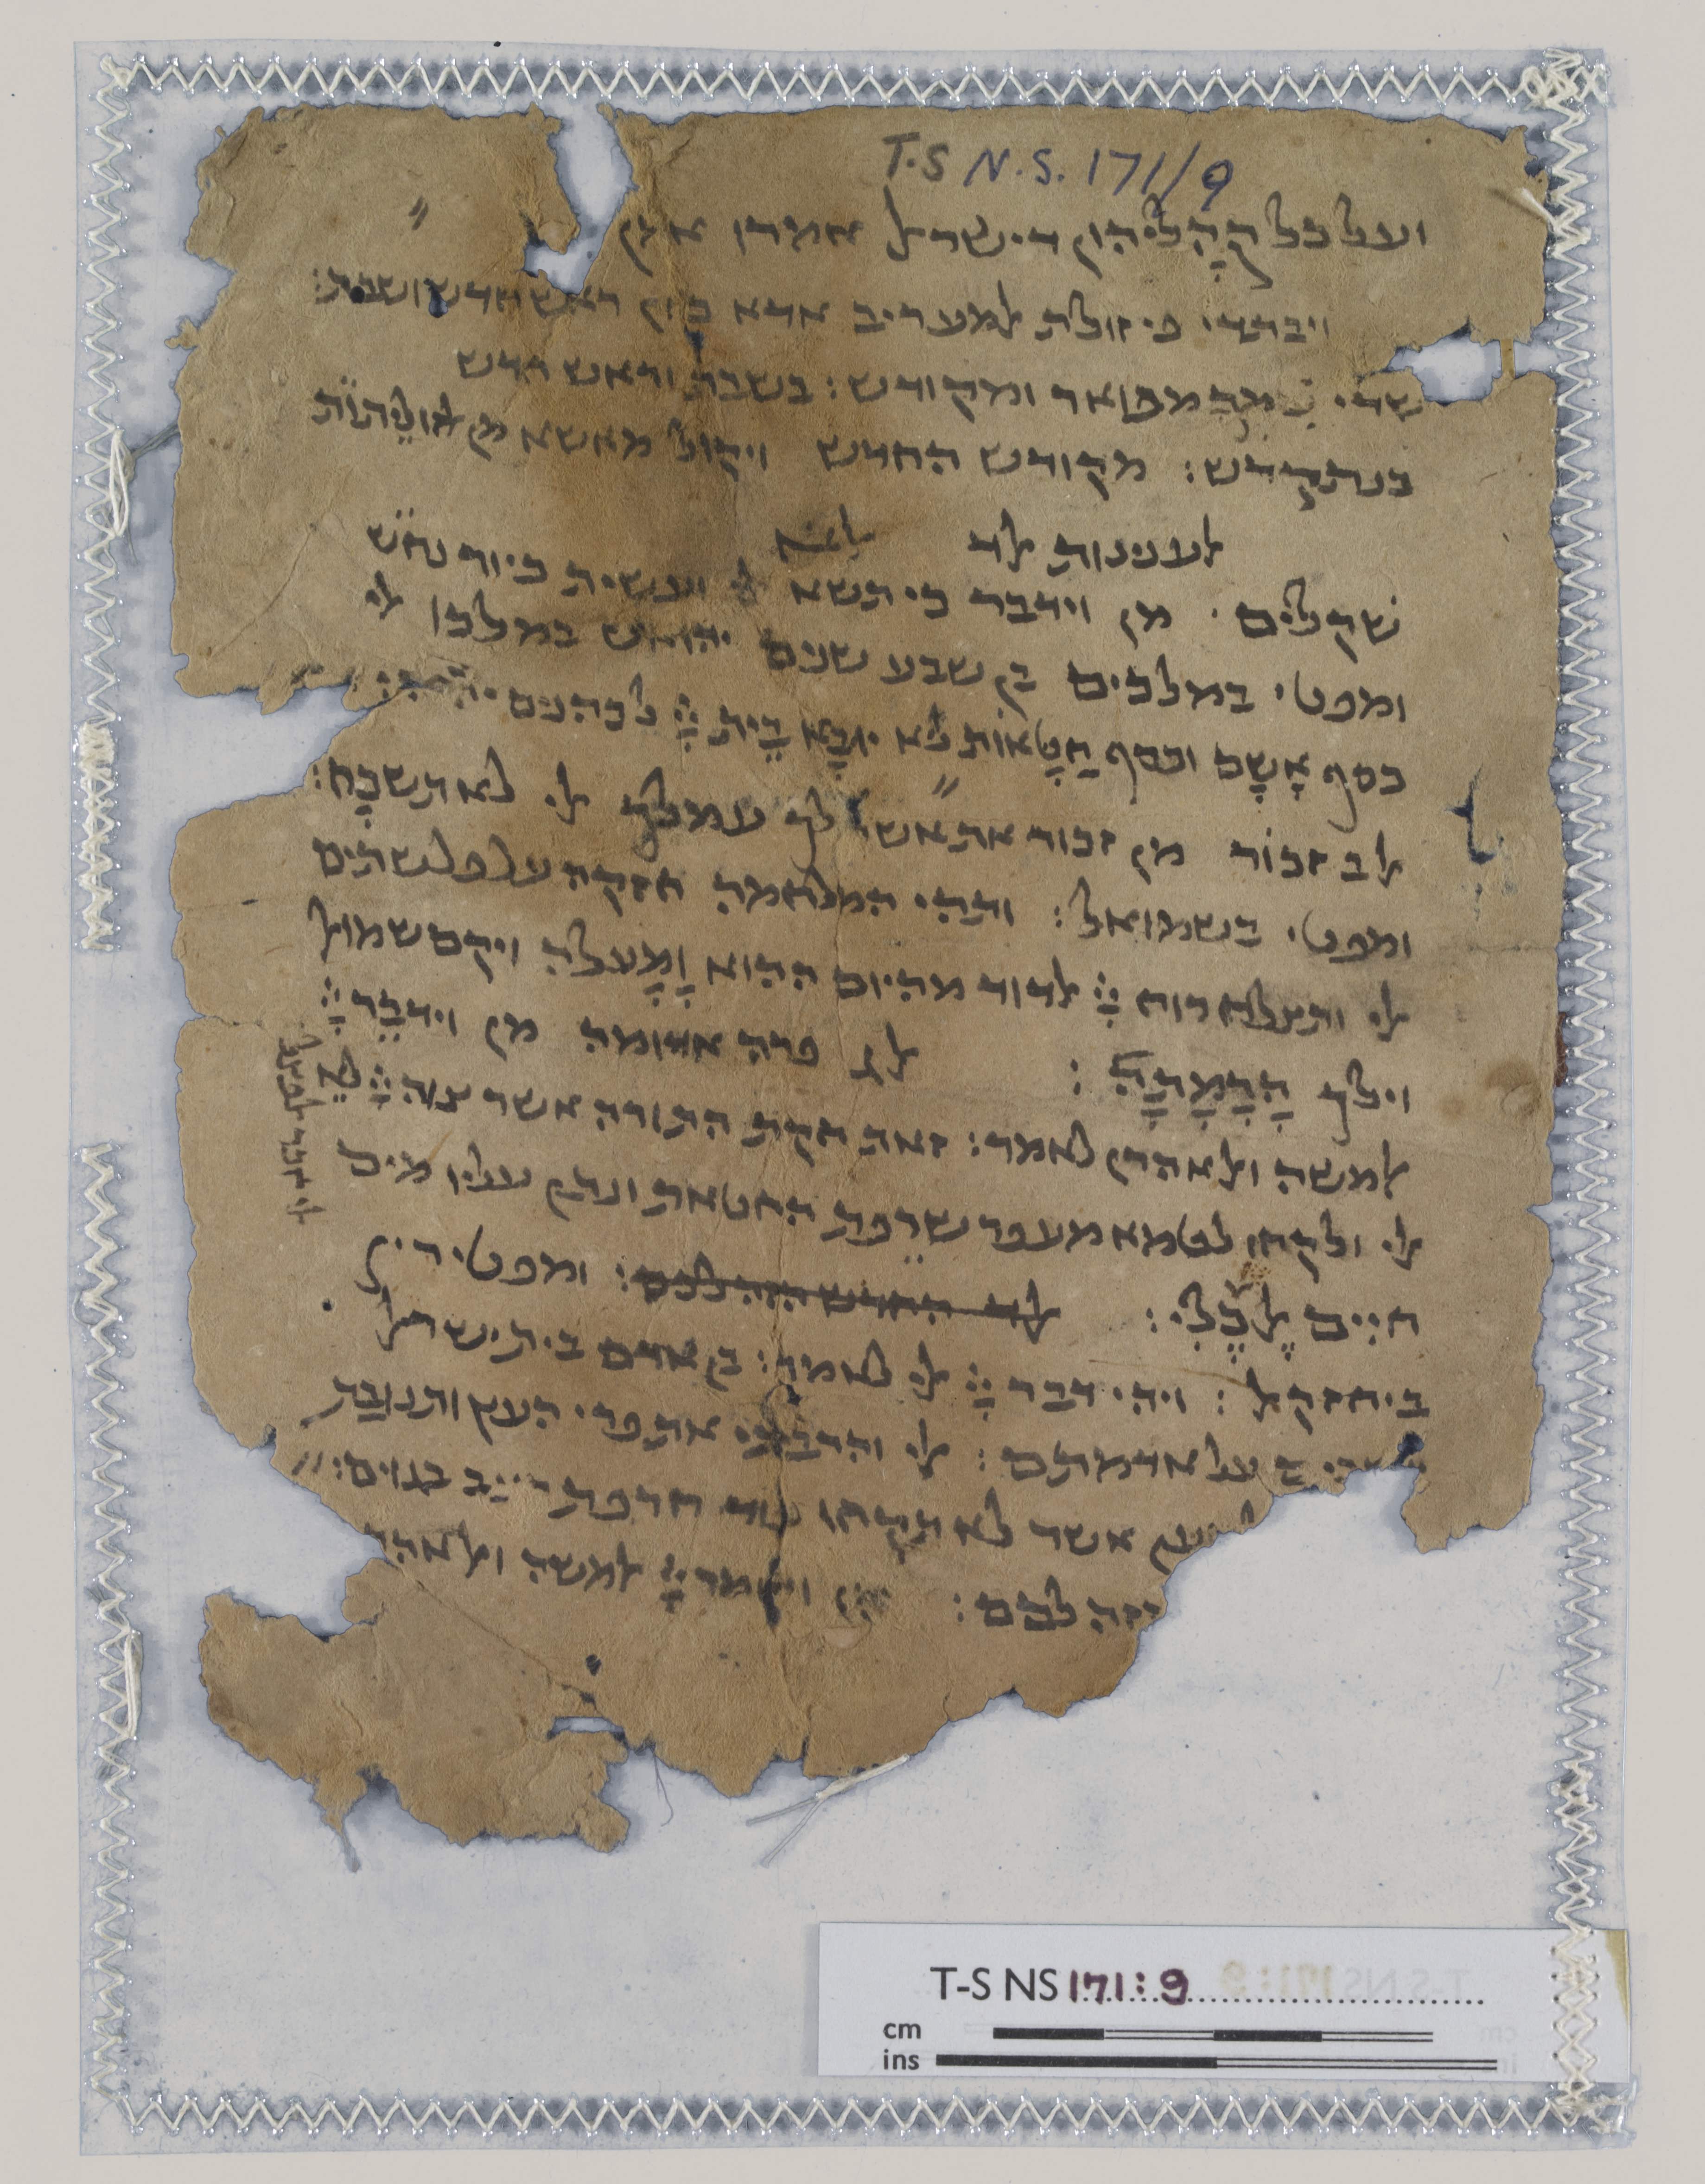 T-S N.S. 171/9
ועל כל קהליהון דישראל אמרו אמן
ויבתדי פי זולת למעריב אדא כאן ראש חדש ושבת:
שדי מפואר ומקודש: בשבת וראש חדש
בנתקדש: מקודש החדש ויקול מאשא מן
לענינות לד
שקלים מן וידבר כי תשא לי ועשית כיור נחש
ומפטי במלכים בן שבע שנים יהואש במלכו לי
כסף אשם וכסף חטאות לא יובא בית לכהנים
לב זכור מן זכור את אשר לך עמלק לי לא תשכח:
ומפטי בשמואל: ותהי המלחמה חזקה על פלשתים
לי ותצלח רוח לדוד מהיום ההוא ומעלה ויקם שמואל
וילך הרמתה: לג פרה אדומה מן וידבר
למשה ולאהרן לאמר: זאת חקת התורה אשר צוה
לי ולקחו לטמא מעפר שרפת החטאת ונתן עליו מים
חיים אל כלי: לד החדש הזה לכם: ומפטירין
ביחזקל: ויהי דבר לי לאמר: בן אדם בית ישראל
על אדמתם: לי והרביתי את פרי העץ ותנובת
למען אשר לא תקחו עוד חרפת רעב בגוים:
הזה לכם: מן ויאמר למשה ולאהר
T-S NS 171:9
cm
ins